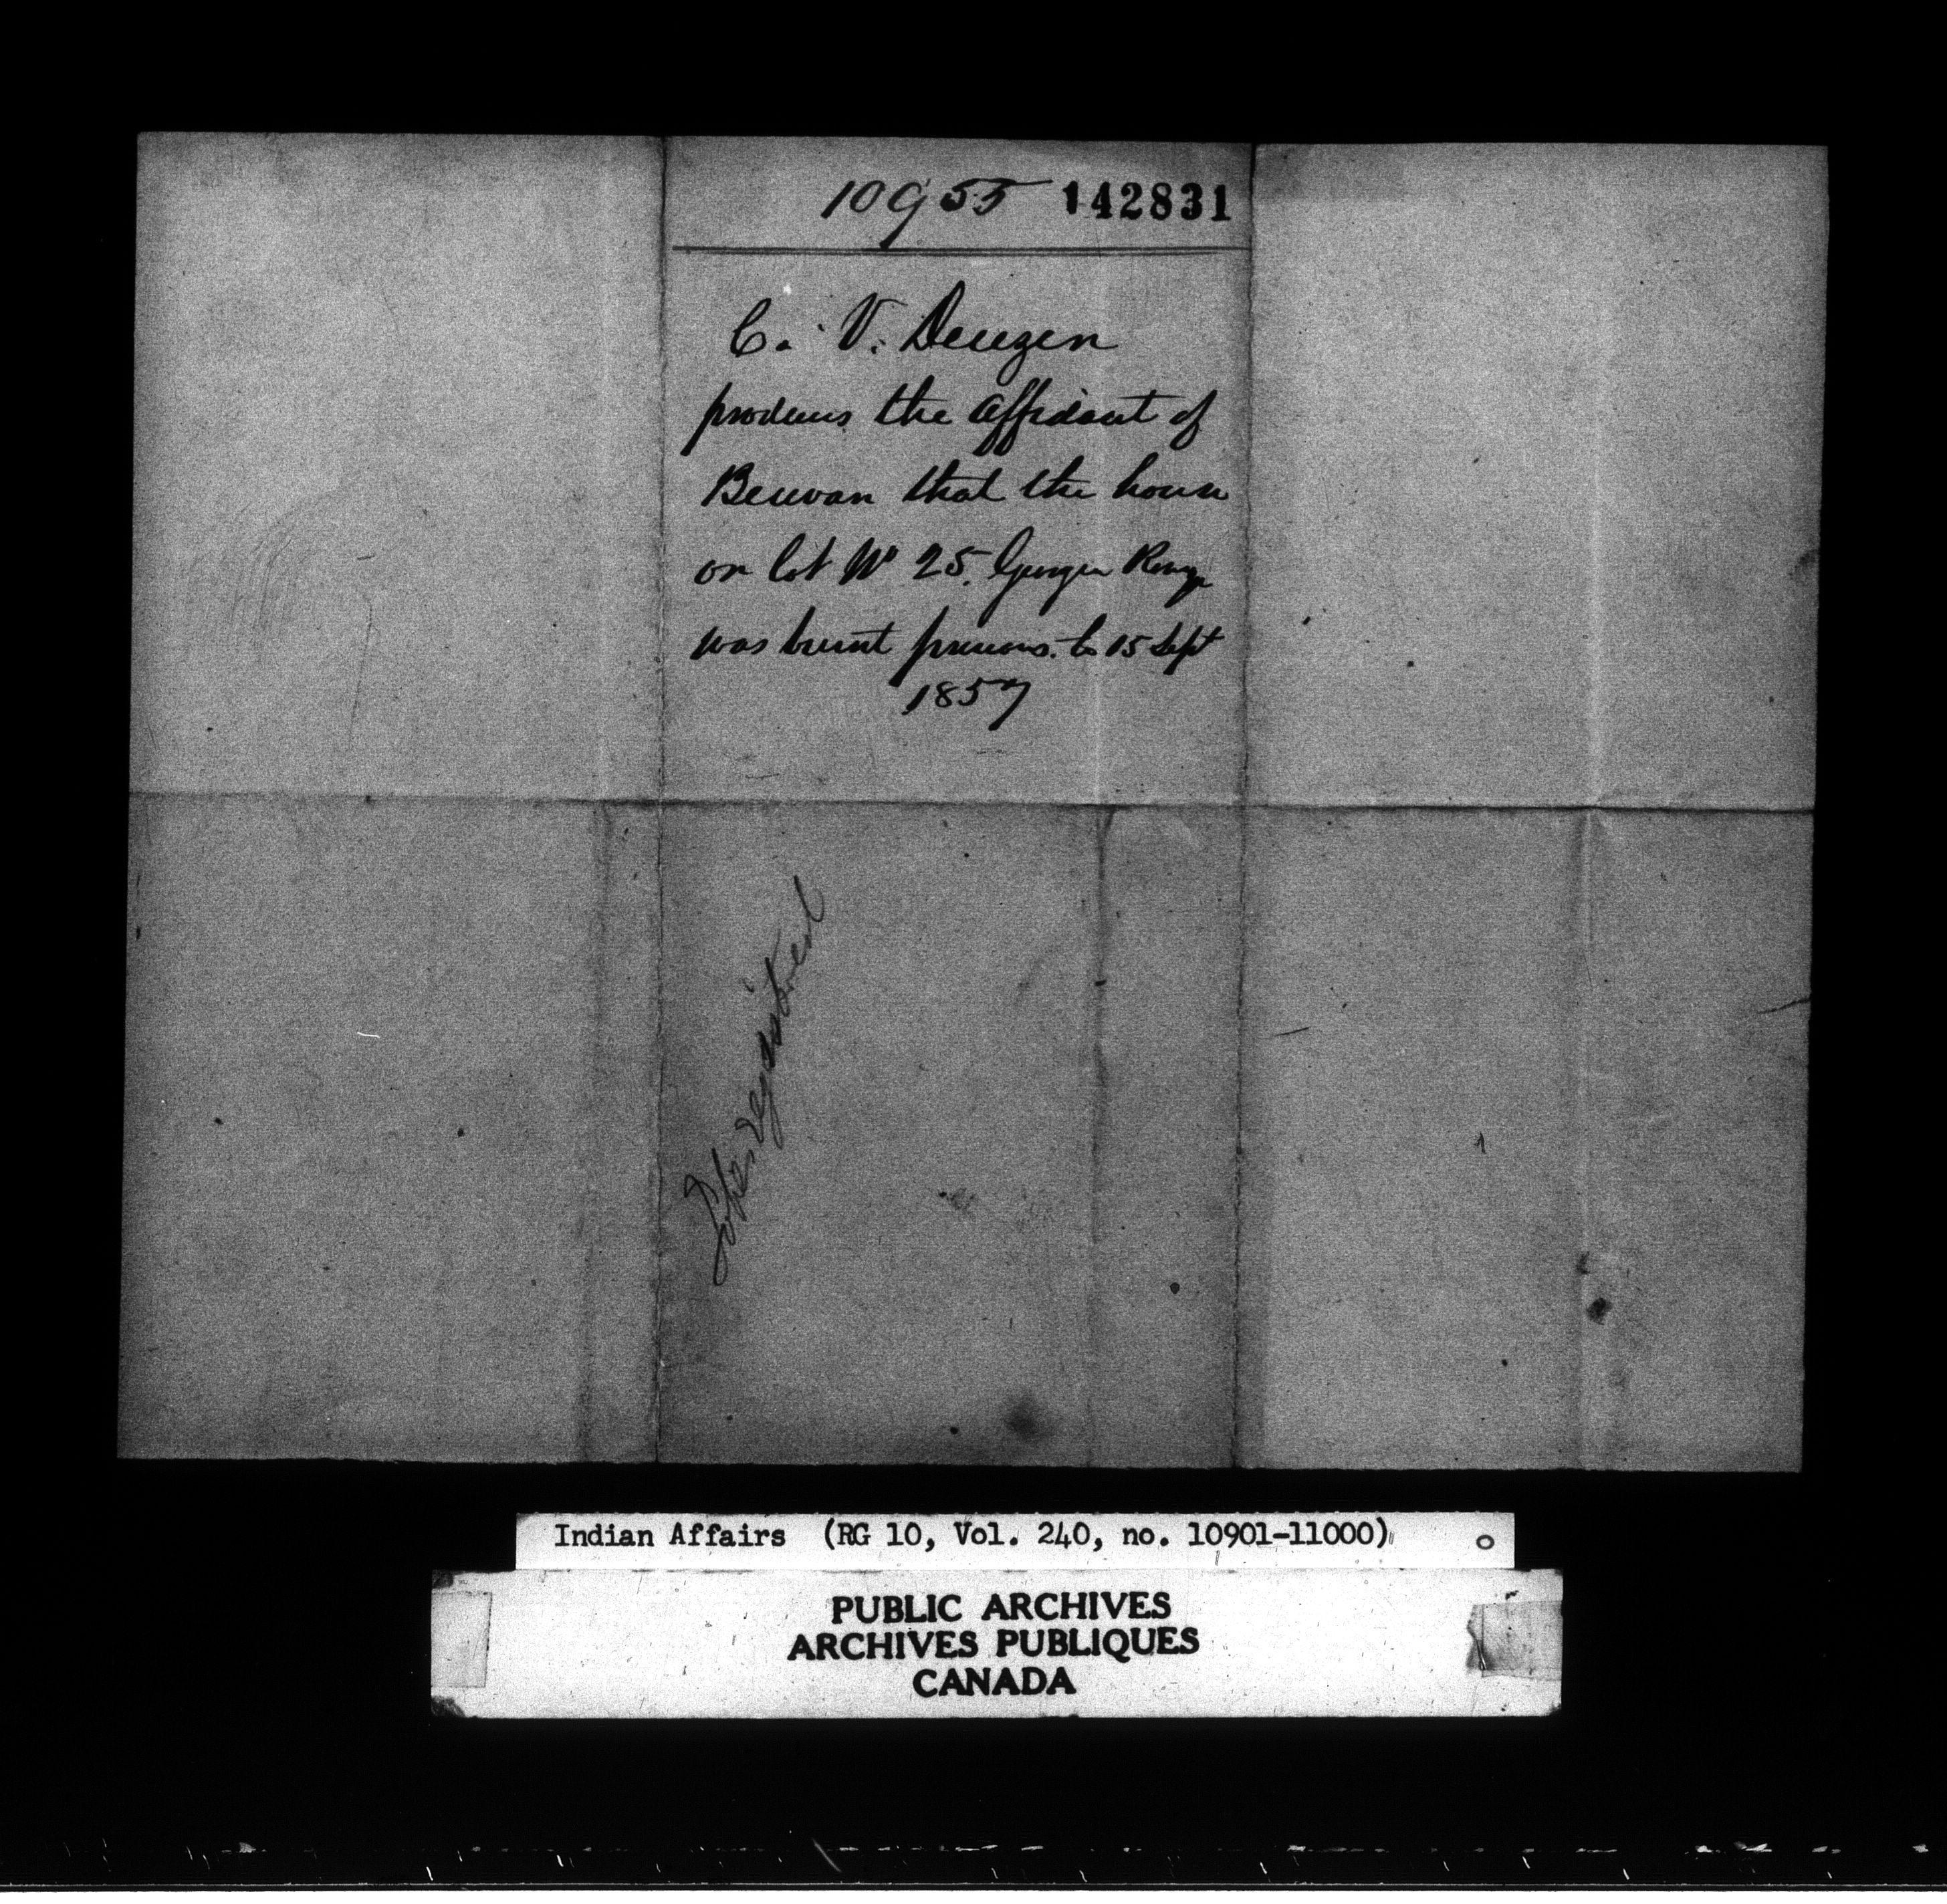 10955 142831
C. V. Deuzen
produces the affidavit of
Beuvan that the house
on lot No 25. Range
was burnt previous to 15 Sept
1857
registered
Indian Affairs (RG 10, Vol. 240, no. 10901-11000)
PUBLIC ARCHIVES
ARCHIVES PUBLIQUES
CANADA